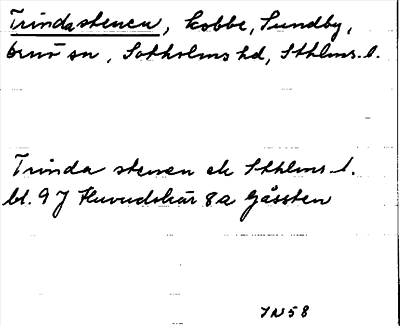 Trindastenen, kobbe, Sundby,
Ornö sn, Sotholms hd, Sthlms. l.
Trinda stenen ek Sthlms l.
bl. 9 J Huvudskär 8 a Gåssten
JN 58